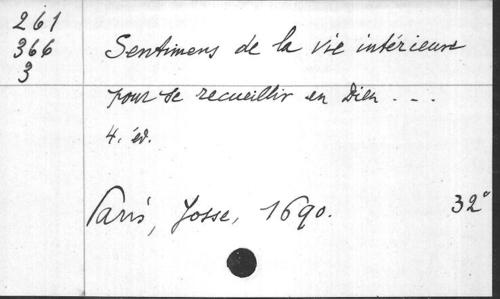 261
366
3
Sentimens de la vie intérieure
pour se recueillir en Dieu . . .
4. éd.
Paris, Josse, 1690.
32°